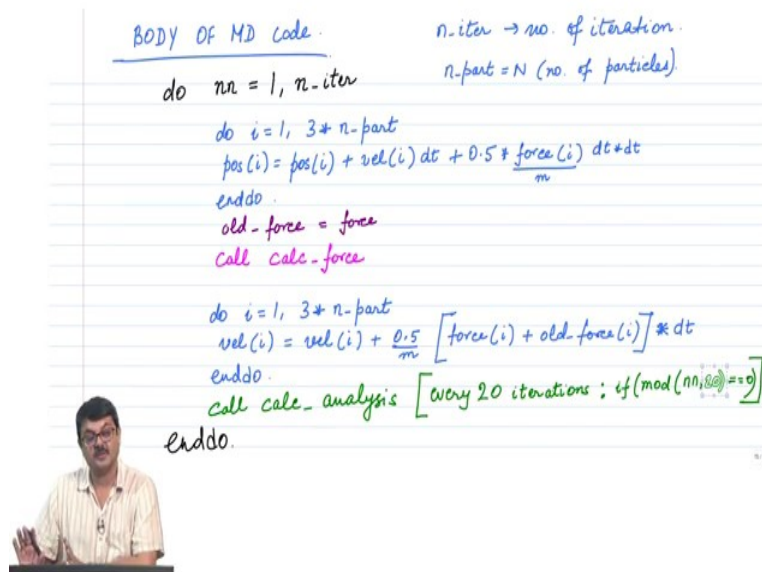 BODY OF MD code.
n-iter → no. of iteration.
n-part = N (no. of particles)
do nn = 1, n-iter
do i = 1, 3* n-part
pos(i) = pos(i) + vel(i) dt + 0.5 * force(i)/m dt*dt
enddo.
old-force = force
call calc-force
do i = 1, 3* n-part
vel(i) = vel(i) + 0.5/m [force(i) + old-force(i)] * dt
enddo.
call calc-analysis [every 20 iterations : if (mod(nn, ) == 0)]
enddo.